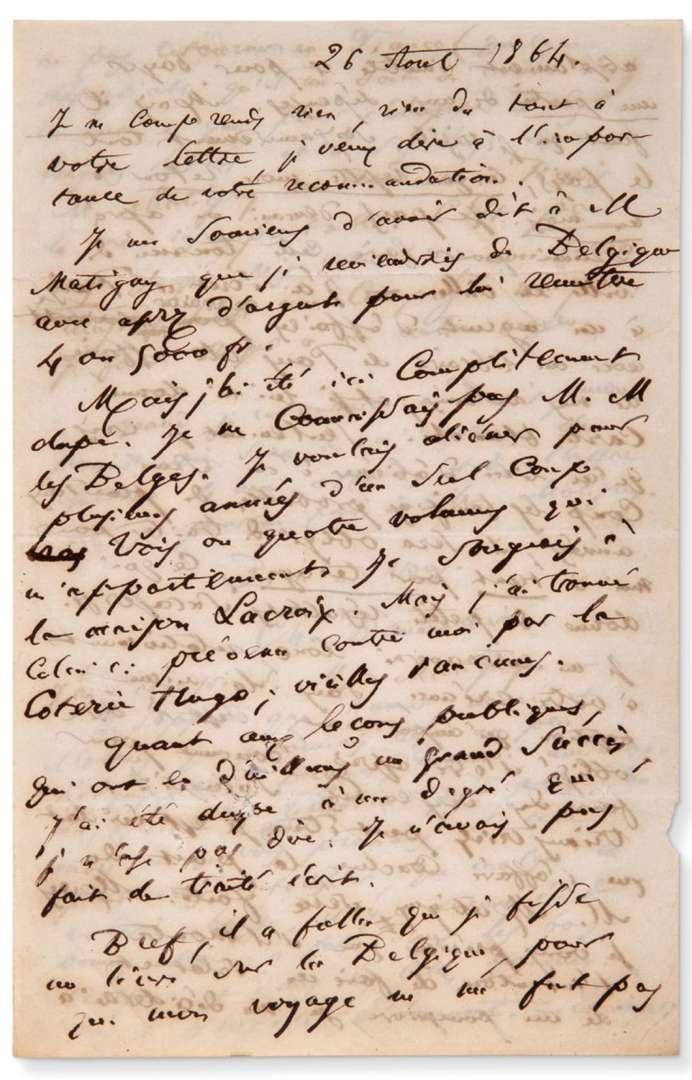 26 Aout 1864.
Je ne comprends rien, rien du tout à
votre lettre je veux dire à l'impor
tance de votre recommandation.
Je me souviens d'avoir dit à M
Matigny que je reviendrais de Belgique
avec assez d'argent pour lui remettre
4 ou 5000 fr.
Mais j'ai été ici complètement
dupé. Je ne connaissais pas M. M
les Belges. Je voulais aliéner pour
plusieurs années d'un seul coup
trois ou quatre volumes qui
m'appartiennent. Je songeais à
la maison Lacroix. Mais j'ai trouvé
celui-ci prévenu contre moi par la
Coterie Hugo; vieilles rancunes.
Quant aux leçons publiques,
qui ont eu d'ailleurs un grand succès
j'ai été dupé à un degré que
je n'ose pas dire. Je n'avais pas
fait de traité écrit.
Bref, il a fallu que je fisse
un livre sur la Belgique, pour
que mon voyage ne me fut pas